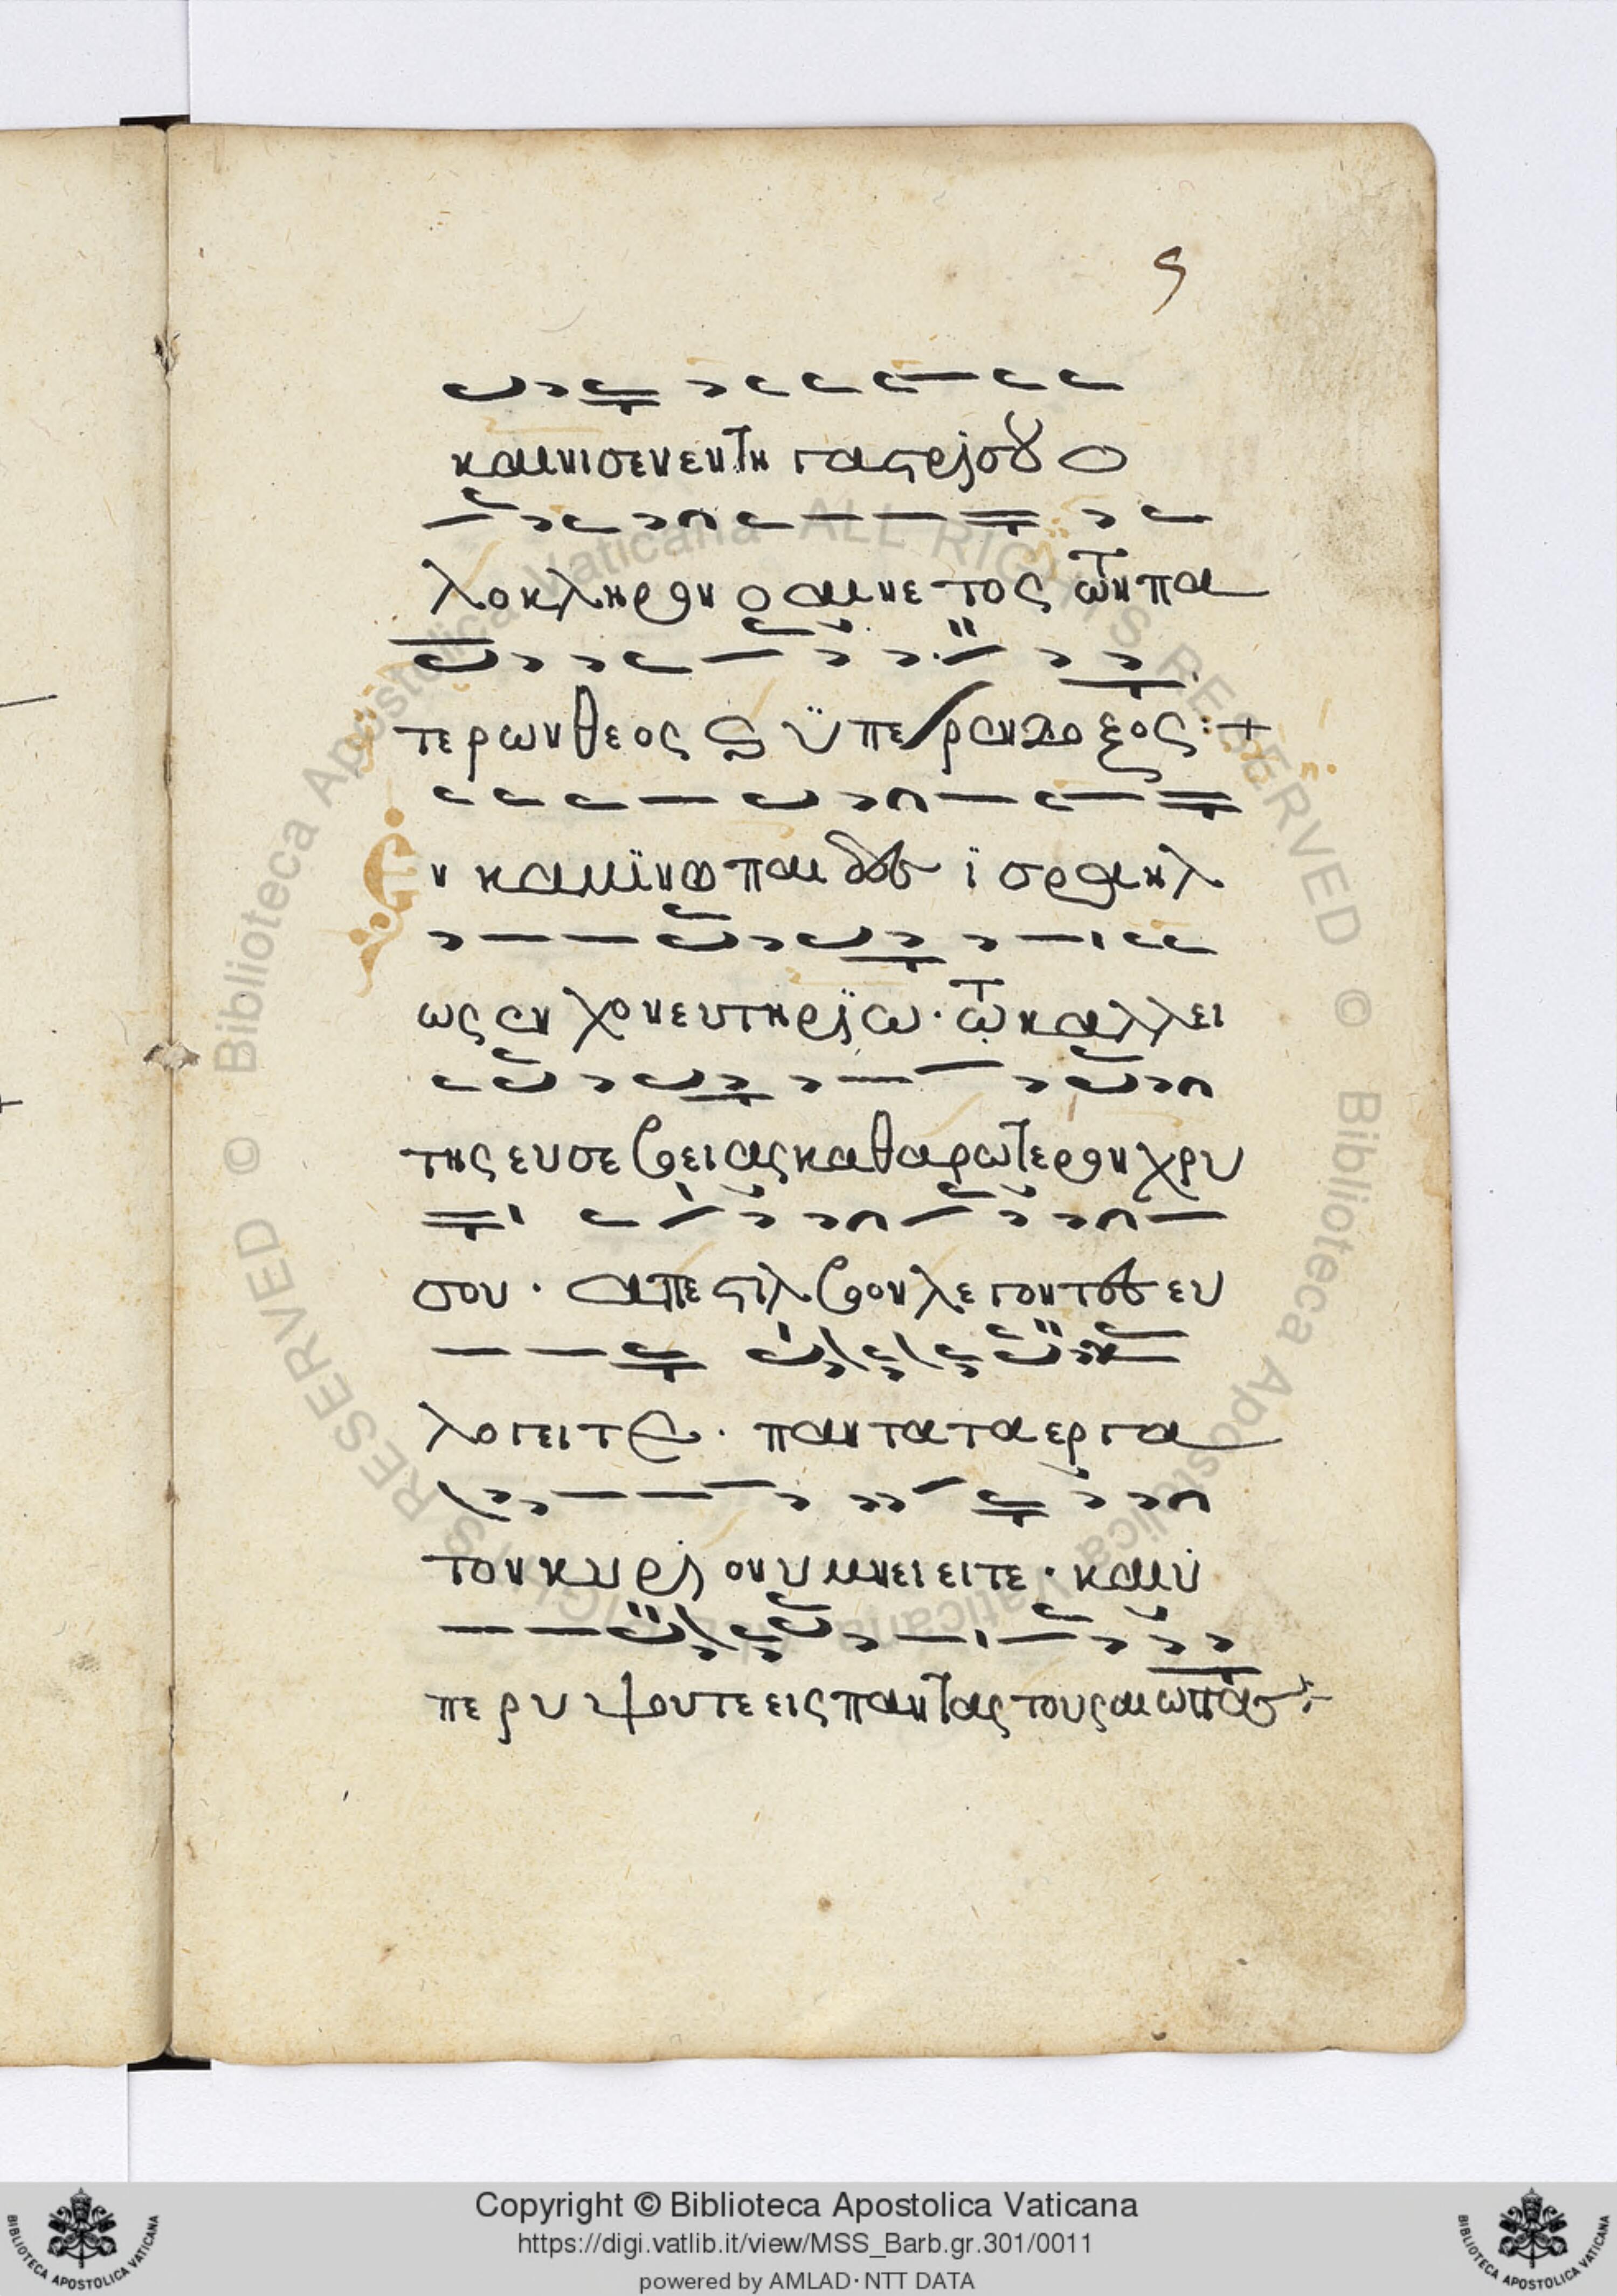 ς
καινισενεντη γαστρι σου ο
λοκληρον ο αινετος των πα
τερων θεος ϗ ϋπερενδοξος :+
ν καμϊνω παιδες ϊσραηλ
ως εν χονευτηριω · των καλλει
της ευσεβειας καθαρωτερον χρυ
σου · απεστιλβον λεγοντες ευ
λογειτε · παντα τα εργα
τον κυριον υμνειειτε · και ϋ
περυψουτε εις παντας τους αιωνας :+
Biblioteca Apostolica Vaticana ALL RIGHTS RESERVED ©
Biblioteca Apostolica Vaticana ALL RIGHTS RESERVED ©
Copyright © Biblioteca Apostolica Vaticana
https://digi.vatlib.it/view/MSS_Barb.gr.301/0011
powered by AMLAD・NTT DATA
BIBLIOTECA APOSTOLICA VATICANA
BIBLIOTECA APOSTOLICA VATICANA